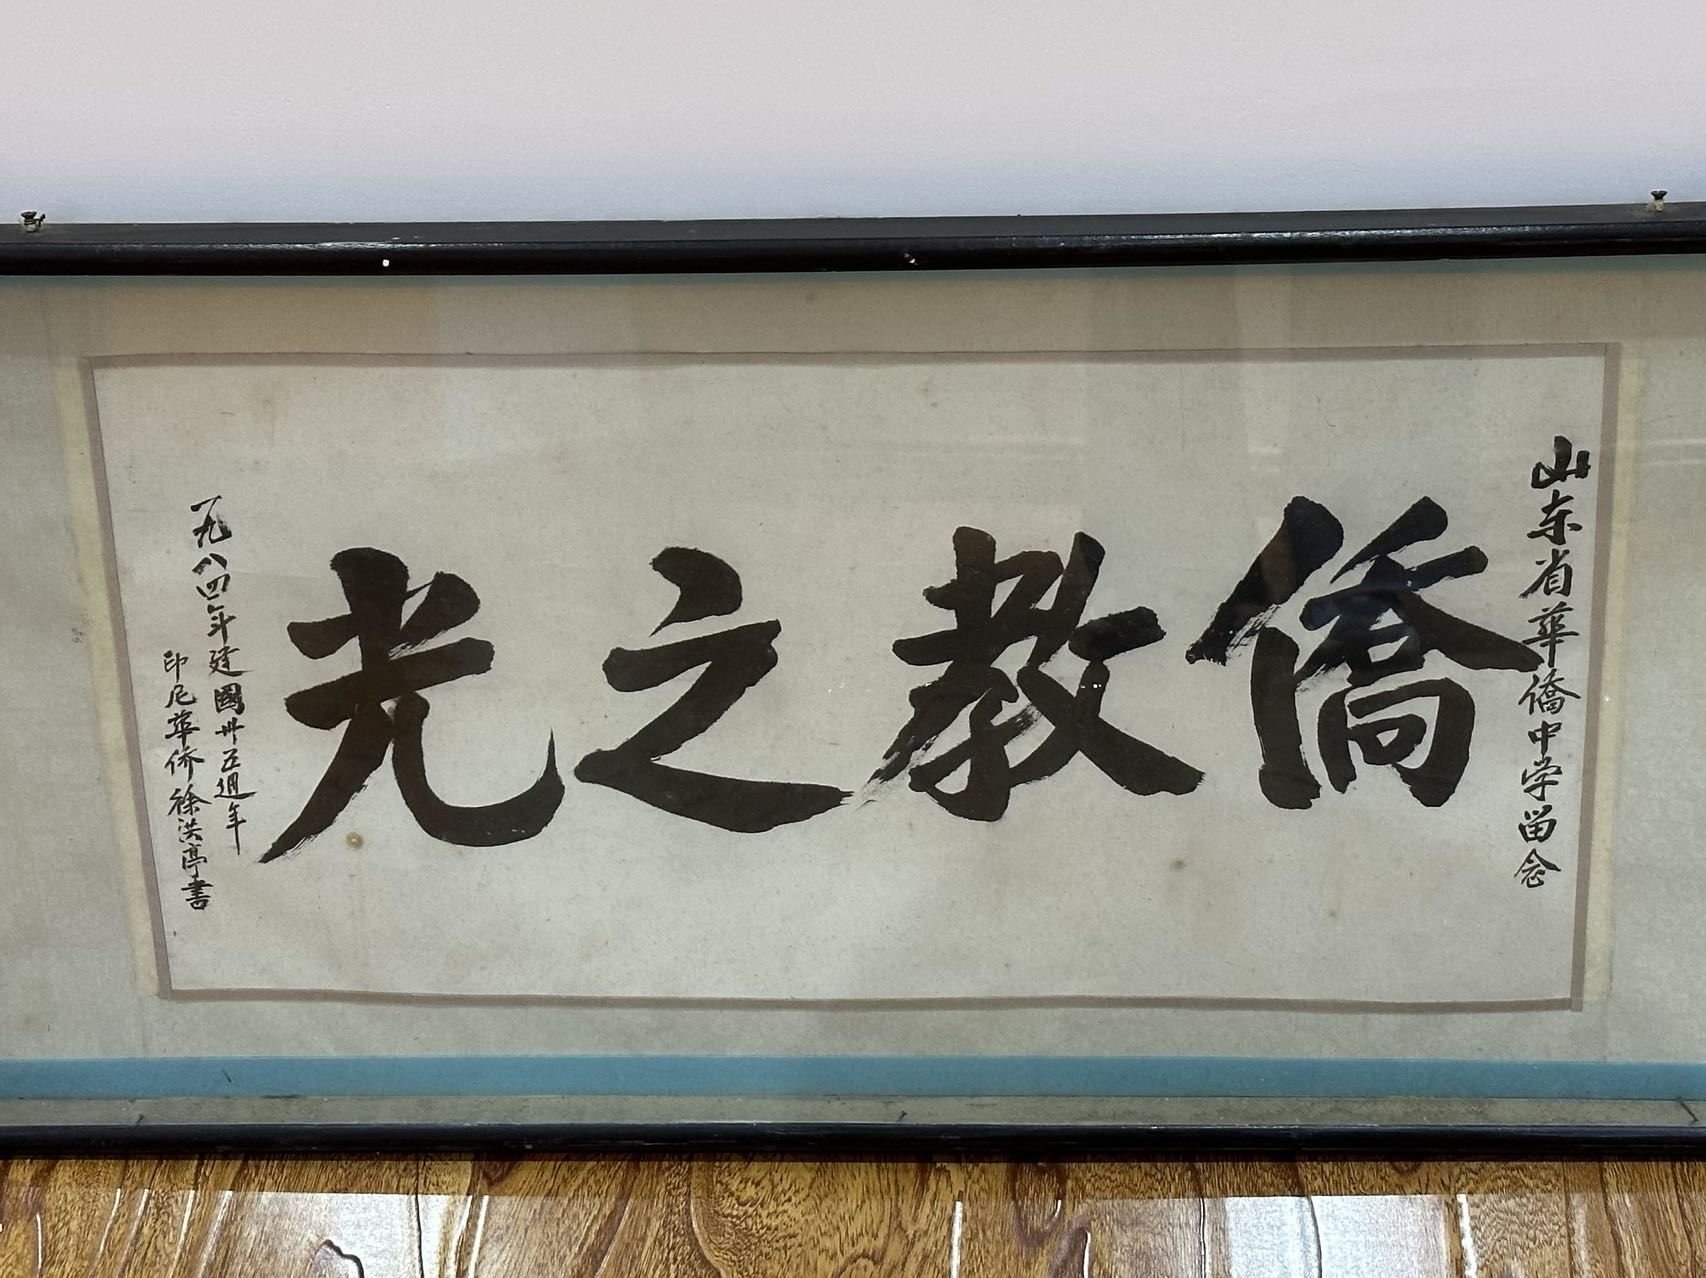 山东省華僑中学留念
僑教之光
一九八四年建國卅五週年
印尼華侨徐洪亭書